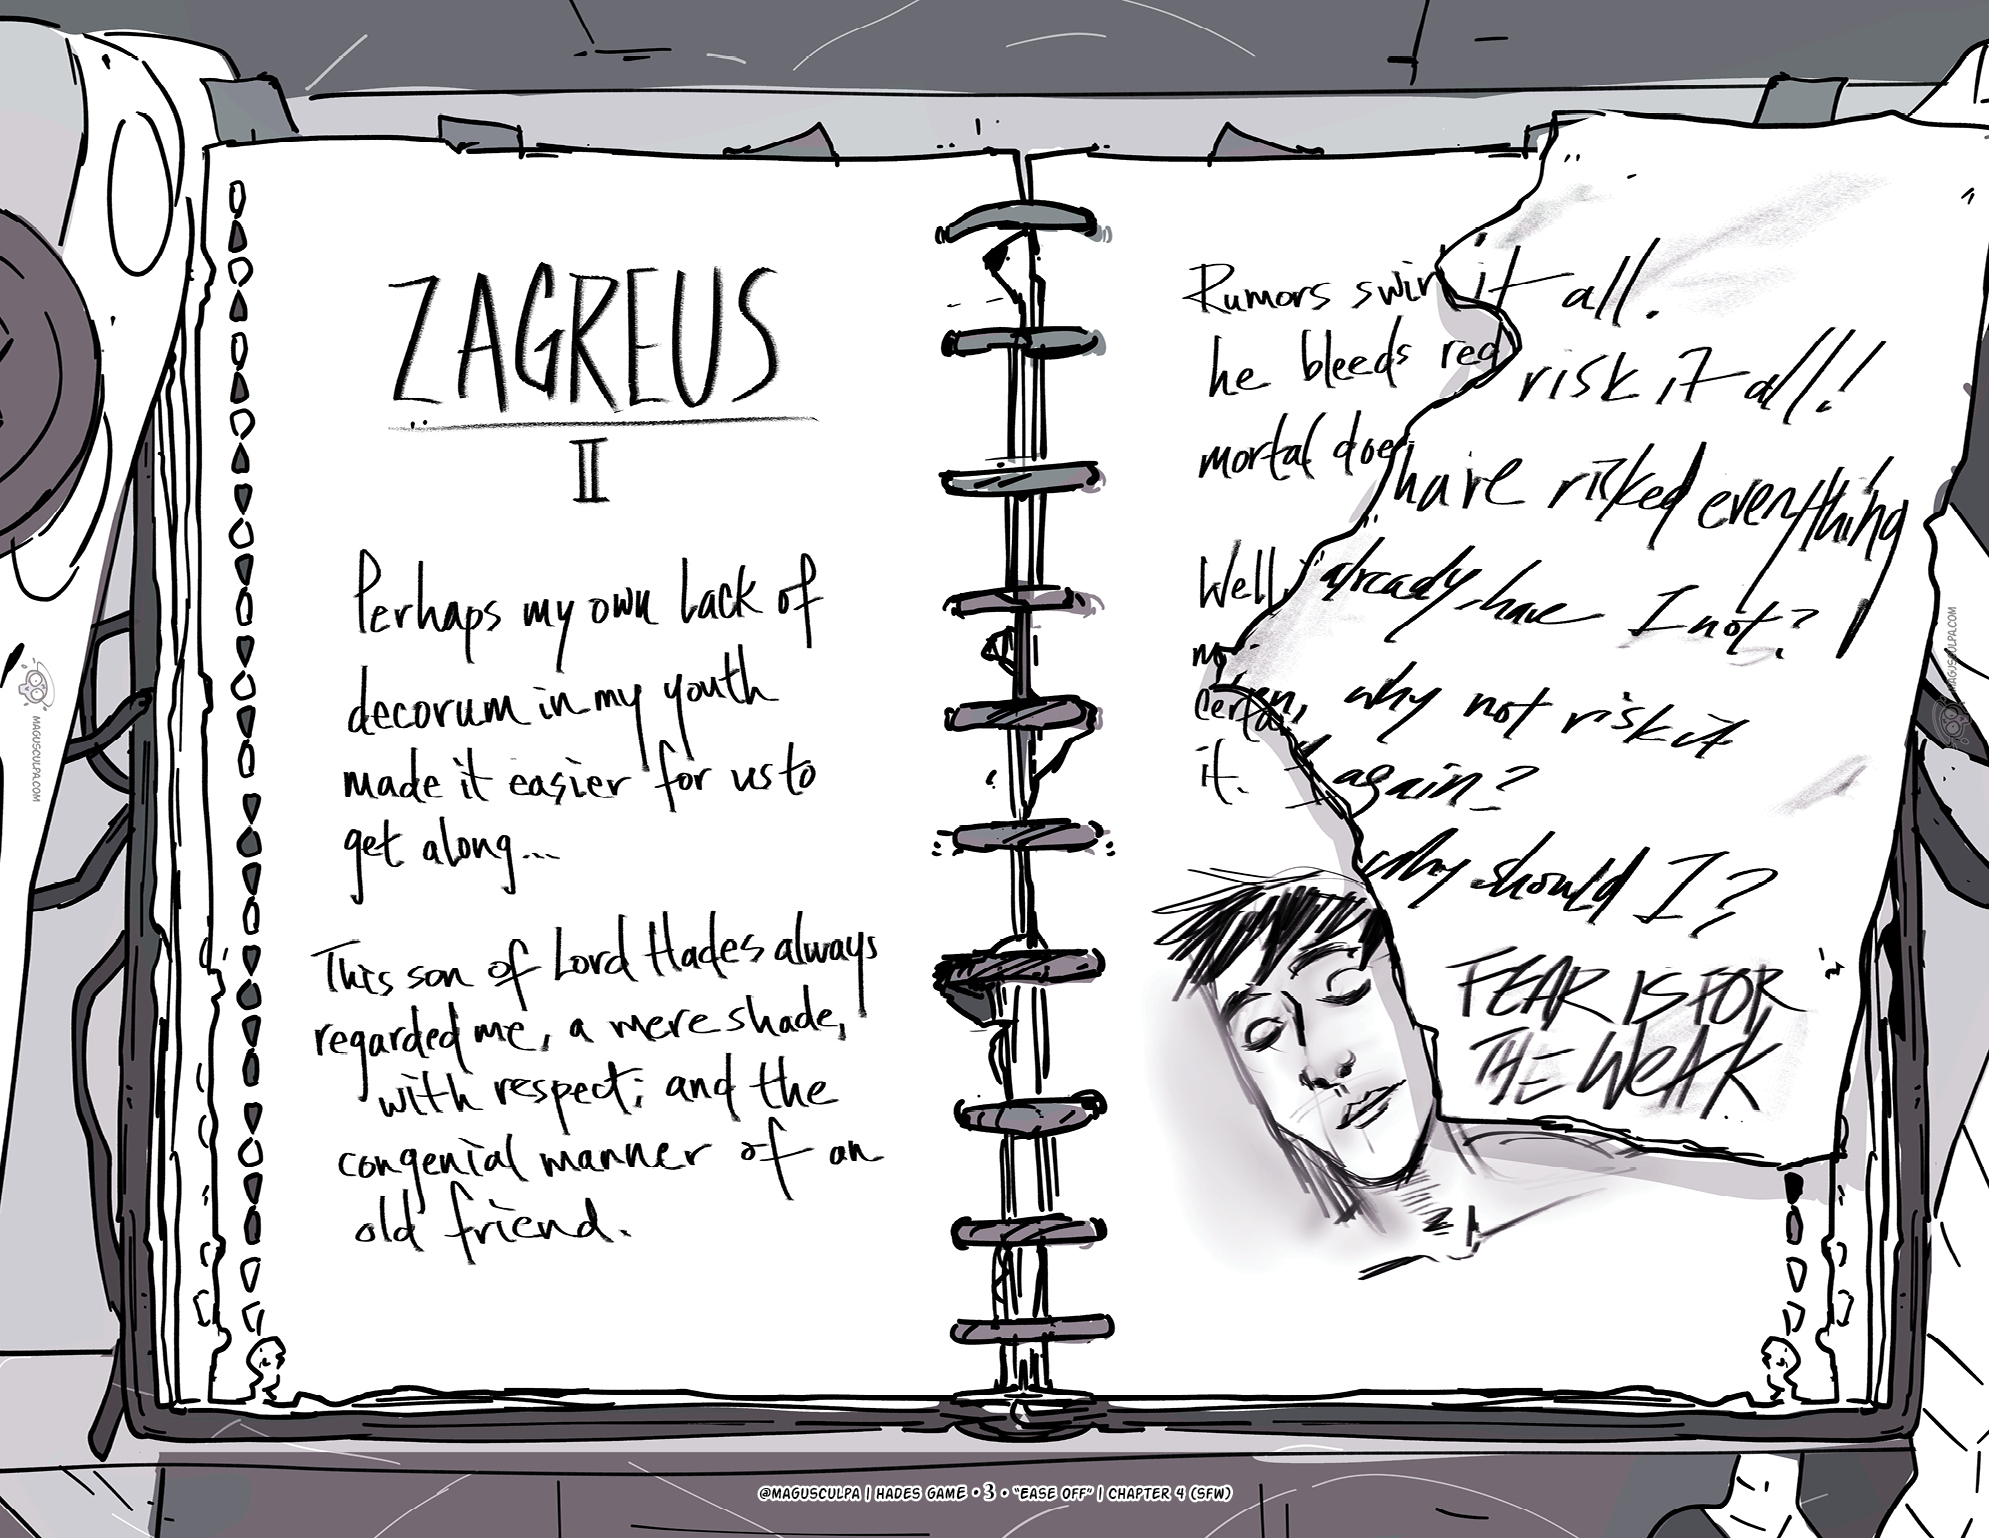 ZAGREUS
II
Perhaps my own lack of
decorum in my youth
made it easier for us to
get along...
This son of Lord Hades always
regarded me, a mere shade,
with respect; and the
congenial manner of an
old friend.
Rumors swir
he bleeds red
mortal doe
Well,
certa
it.
it all.
risk it all!
have risked everything
already, have I not?
then, why not risk it
again?
why should I?
FEAR IS FOR
THE WEAK
MAGUSCULPA.COM
MAGUSCULPA.COM
@MAGUSCULPA | HADES GAME • 3 • "EASE OFF" | CHAPTER 4 (SFW)